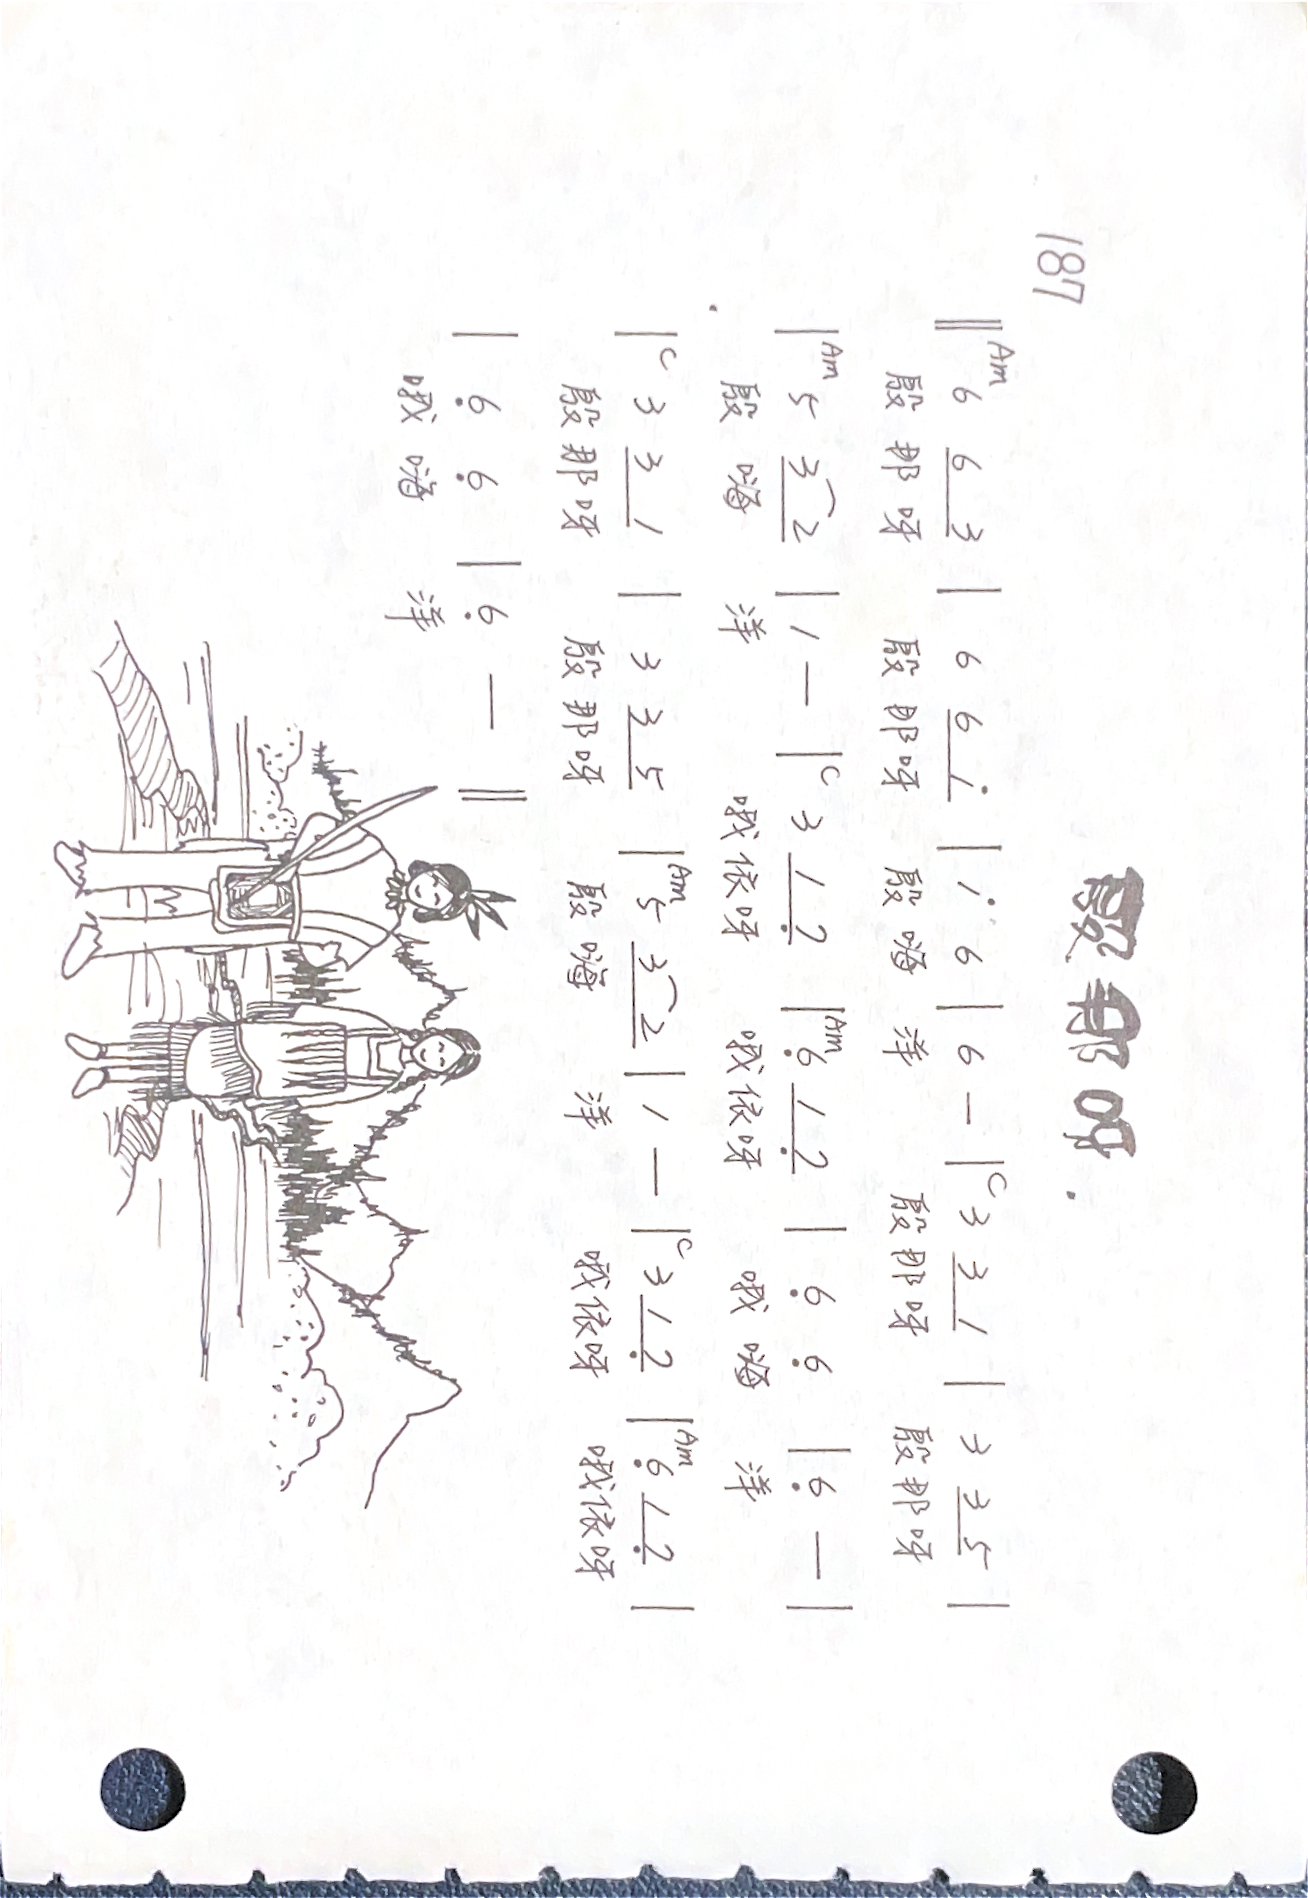 殷那呀.
187
‖Am 6 6 3 | 6 6 i̇ | i̇ 6 | 6 — |C 3 3 1 | 3 3 5 |
殷 那 呀 殷 那 呀 殷 嗨 洋 殷 那 呀 殷 那 呀
|Am 5 3 2 | 1 — |C 3 1 7̣ |Am 6̣ 1 7̣ | 6̣ 6̣ | 6̣ — |
殷 嗨 洋 哦 依 呀 哦 依 呀 哦 嗨 洋
|C 3 3 1 | 3 3 5 |Am 5 3 2 | 1 — |C 3 1 7̣ |Am 6̣ 1 7̣ |
殷 那 呀 殷 那 呀 殷 嗨 洋 哦 依 呀 哦 依 呀
| 6̣ 6̣ | 6̣ — ‖
哦 嗨 洋